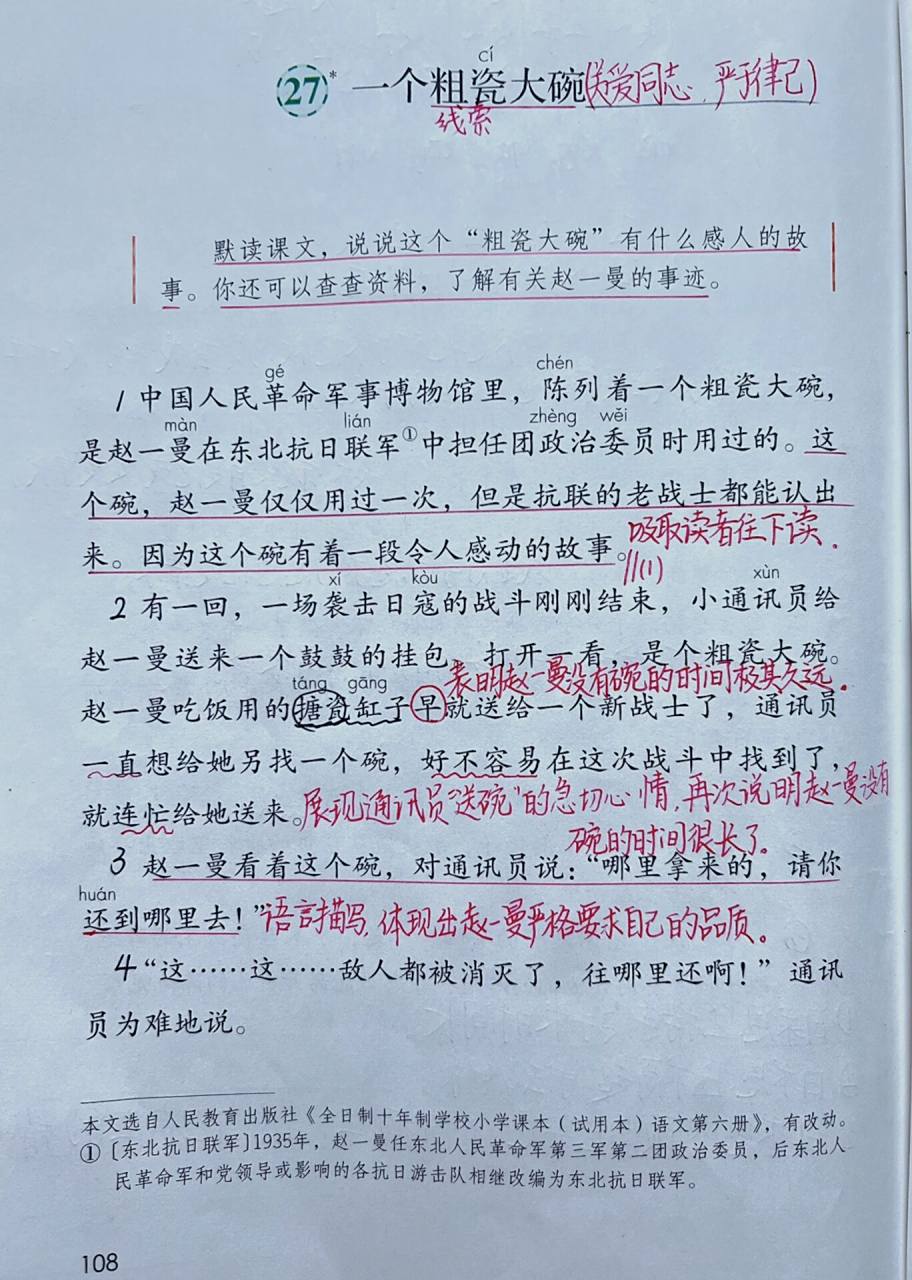 cí
27* 一个粗瓷大碗(关爱同志、严于律己)
线索
默读课文，说说这个“粗瓷大碗”有什么感人的故
事。你还可以查查资料，了解有关赵一曼的事迹。
gé chén
1 中国人民革命军事博物馆里，陈列着一个粗瓷大碗，
màn lián zhèng wěi
是赵一曼在东北抗日联军①中担任团政治委员时用过的。这
个碗，赵一曼仅仅用过一次，但是抗联的老战士都能认出
来。因为这个碗有着一段令人感动的故事。吸取读者往下读.
//(1)
xí kòu xùn
2 有一回，一场袭击日寇的战斗刚刚结束，小通讯员给
赵一曼送来一个鼓鼓的挂包，打开一看，是个粗瓷大碗。
表明赵一曼没有碗的时间极其久远.
táng gāng
赵一曼吃饭用的搪瓷缸子早就送给一个新战士了，通讯员
一直想给她另找一个碗，好不容易在这次战斗中找到了，
就连忙给她送来。展现通讯员“送碗”的急切心情,再次说明赵一曼没有
碗的时间很长了。
3 赵一曼看着这个碗，对通讯员说：“哪里拿来的，请你
huán
还到哪里去！”语言描写,体现出赵一曼严格要求自己的品质。
4 “这……这……敌人都被消灭了，往哪里还啊！”通讯
员为难地说。
本文选自人民教育出版社《全日制十年制学校小学课本（试用本）语文第六册》，有改动。
① 〔东北抗日联军〕1935年，赵一曼任东北人民革命军第三军第二团政治委员，后东北人
民革命军和党领导或影响的各抗日游击队相继改编为东北抗日联军。
108